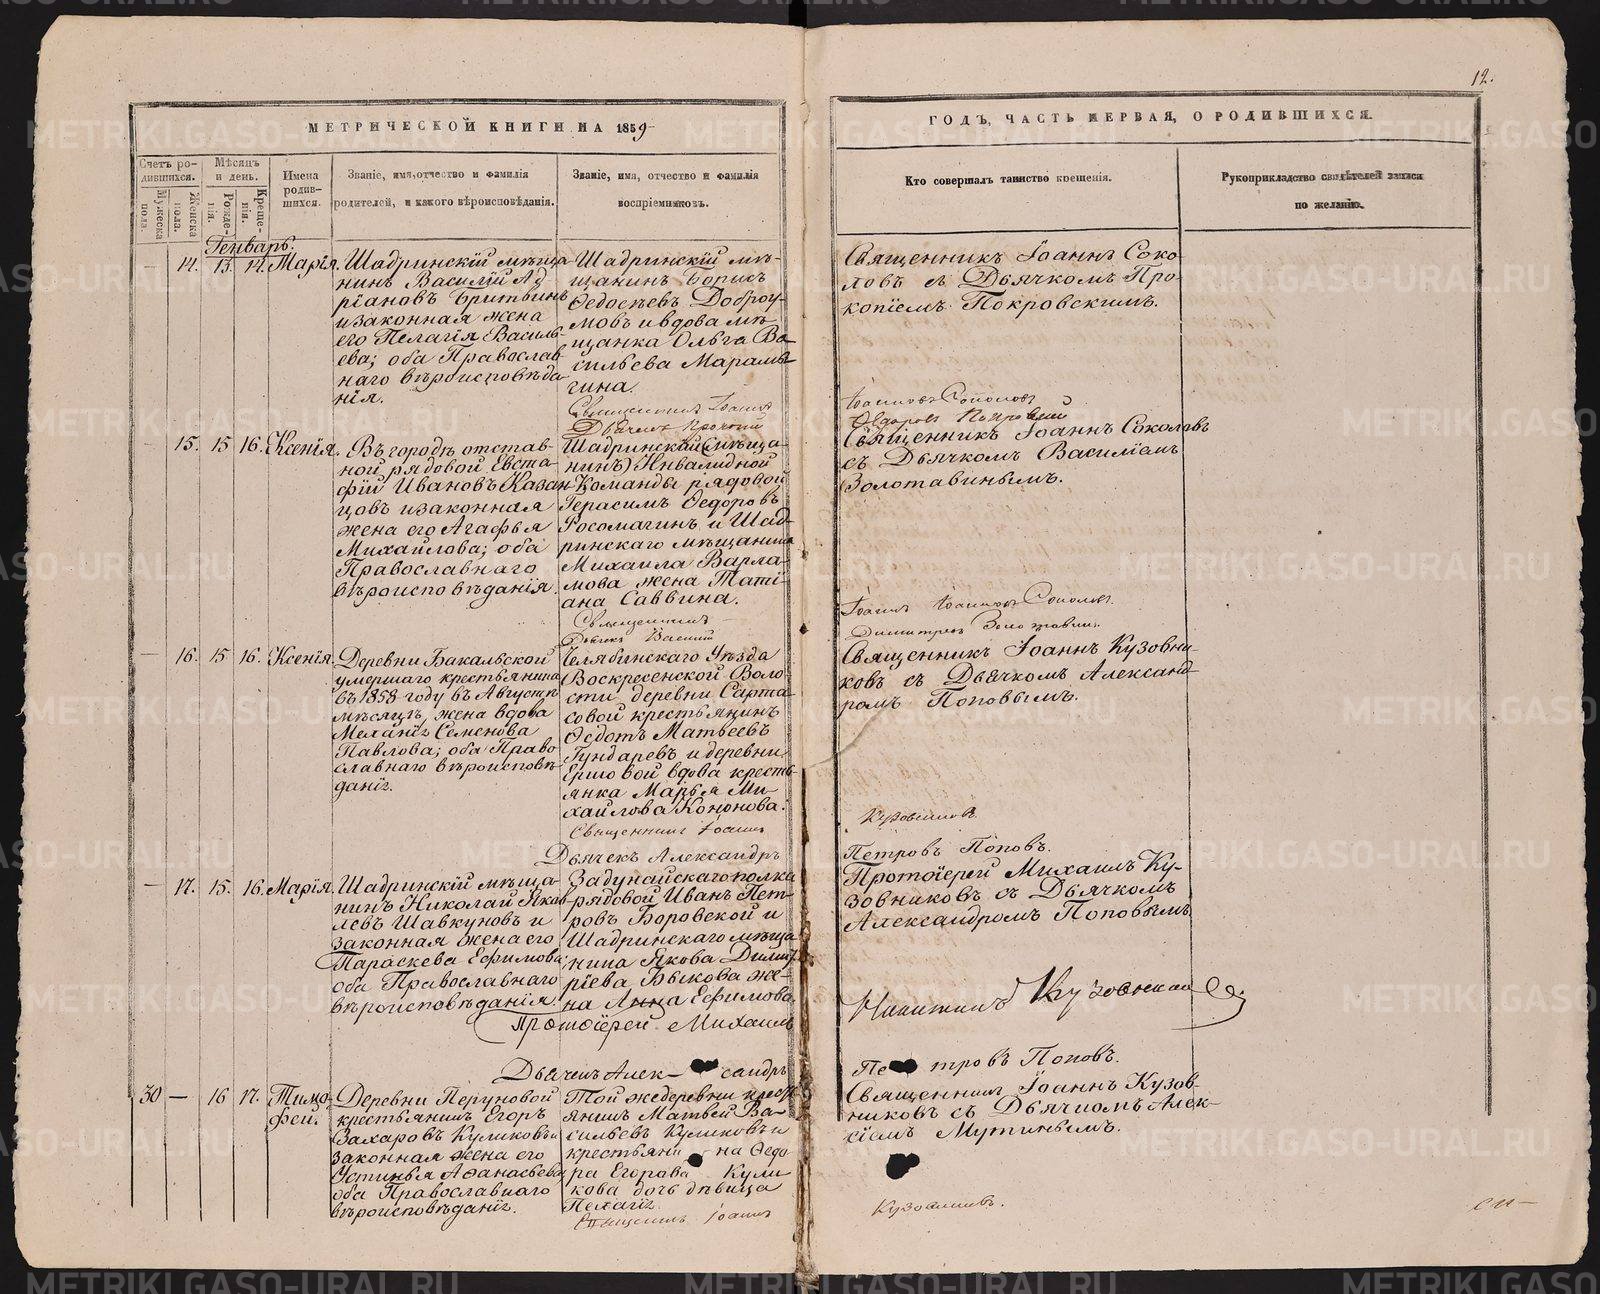 12.
МЕТРИЧЕСКОЙ КНИГИ НА 1859
ГОДЪ, ЧАСТЬ ПЕРВАЯ, О РОДИВШИХСЯ.
Счетъ ро-
дившихся.
Мужеска
пола.
Женска
пола.
Мѣсяцъ
и день.
Рожде-
нія.
Креще-
нія.
Имена
родив-
шихся.
Званіе, имя, отчество и фамилія
родителей, и какого вѣроисповѣданія.
Званіе, имя, отчество и фамилія
воспріемниковъ.
Кто совершалъ таинство крещенія.
Рукоприкладство свидѣтелей записи
по желанію.
Генварь.
— 14. 13. 14. Марія.
Шадринскій мѣща-
нинъ Василій Ад-
ріановъ Бритвинъ
и законная жена
его Пелагія Василь-
ева; оба Православ-
наго вѣроисповѣда-
нія.
Шадринскій мѣ-
щанинъ Борисъ
Ѳедосѣевъ Доброу-
мовъ и вдова мѣ-
щанка Ольга Ва-
сильева Марамы-
гина.
Священникъ Іоаннъ
Дьячекъ Прокопій
Священникъ Іоаннъ Соко-
ловъ съ Дьячкомъ Про-
копіемъ Покровскимъ.
Іоанновъ Соколовъ
Ѳедоровъ Покровскій
— 15. 15 16. Ксенія.
Въ городѣ отстав-
ной рядовой Евста-
фій Ивановъ Казан-
цовъ и законная
жена его Агафья
Михайлова; оба
Православнаго
вѣроисповѣданія.
Шадринской (мѣща-
нинъ) Инвалидной
Команды рядовой
Герасимъ Ѳедоровъ
Росомагинъ и Шад-
ринскаго мѣщанина
Михаила Варла-
мова жена Тати-
ана Саввина.
Священникъ
Дьячекъ Василій
Священникъ Іоаннъ Соколовъ
съ Дьячкомъ Василіемъ
Золотавинымъ.
Іоаннъ Іоанновъ Соколовъ.
Димитріевъ Золотавинъ.
— 16. 15 16. Ксенія.
Деревни Бакальской
умершаго крестьянина
въ 1858 году въ Августѣ
мѣсяцѣ, жена вдова
Меланія Семенова
Павлова; оба Право-
славнаго вѣроисповѣ-
данія.
Челябинскаго Уѣзда
Воскресенской Воло-
сти деревни Сарта-
совой крестьянинъ
Ѳедотъ Матвеевъ
Гундаревъ и деревни
Ершовой вдова кресть-
янка Марья Ми-
хайлова Кононова.
Священникъ Іоаннъ
Дьячекъ Александръ
Священникъ Іоаннъ Кузовни-
ковъ съ Дьячкомъ Александ-
ромъ Поповымъ.
Кузовниковъ
Петровъ Поповъ.
— 17. 15. 16. Марія.
Шадринскій мѣща-
нинъ Николай Яков-
левъ Шавкуновъ и
законная жена его
Параскева Ефимова;
оба Православнаго
вѣроисповѣданія.
Задунайскаго полка
рядовой Иванъ Пет-
ровъ Боровской и
Шадринскаго мѣща-
нина Якова Димит-
ріева Быкова же-
на Анна Ефимова
Протоіерей Михаилъ
Дьячекъ Алек— сандръ
Протоіерей Михаилъ Ку-
зовниковъ съ Дьячкомъ
Александромъ Поповымъ
Никитинъ Кузовниковъ
Пе тровъ Поповъ.
30 — 16 17. Тимо-
фей.
Деревни Перуновой
крестьянинъ Егоръ
Захаровъ Куликовъ и
законная жена его
Устинья Аѳанасьева
оба Православнаго
вѣроисповѣданія.
Той же деревни крест-
янинъ Матвей Ва-
сильевъ Куликовъ и
крестьяни на Ѳедо-
ра Егорова Кули-
кова дочь дѣвица
Пелагія.
Священникъ Іоаннъ
Священникъ Іоаннъ Кузов-
никовъ съ Дьячкомъ Алек-
сіемъ Мутинымъ.
Кузовниковъ.